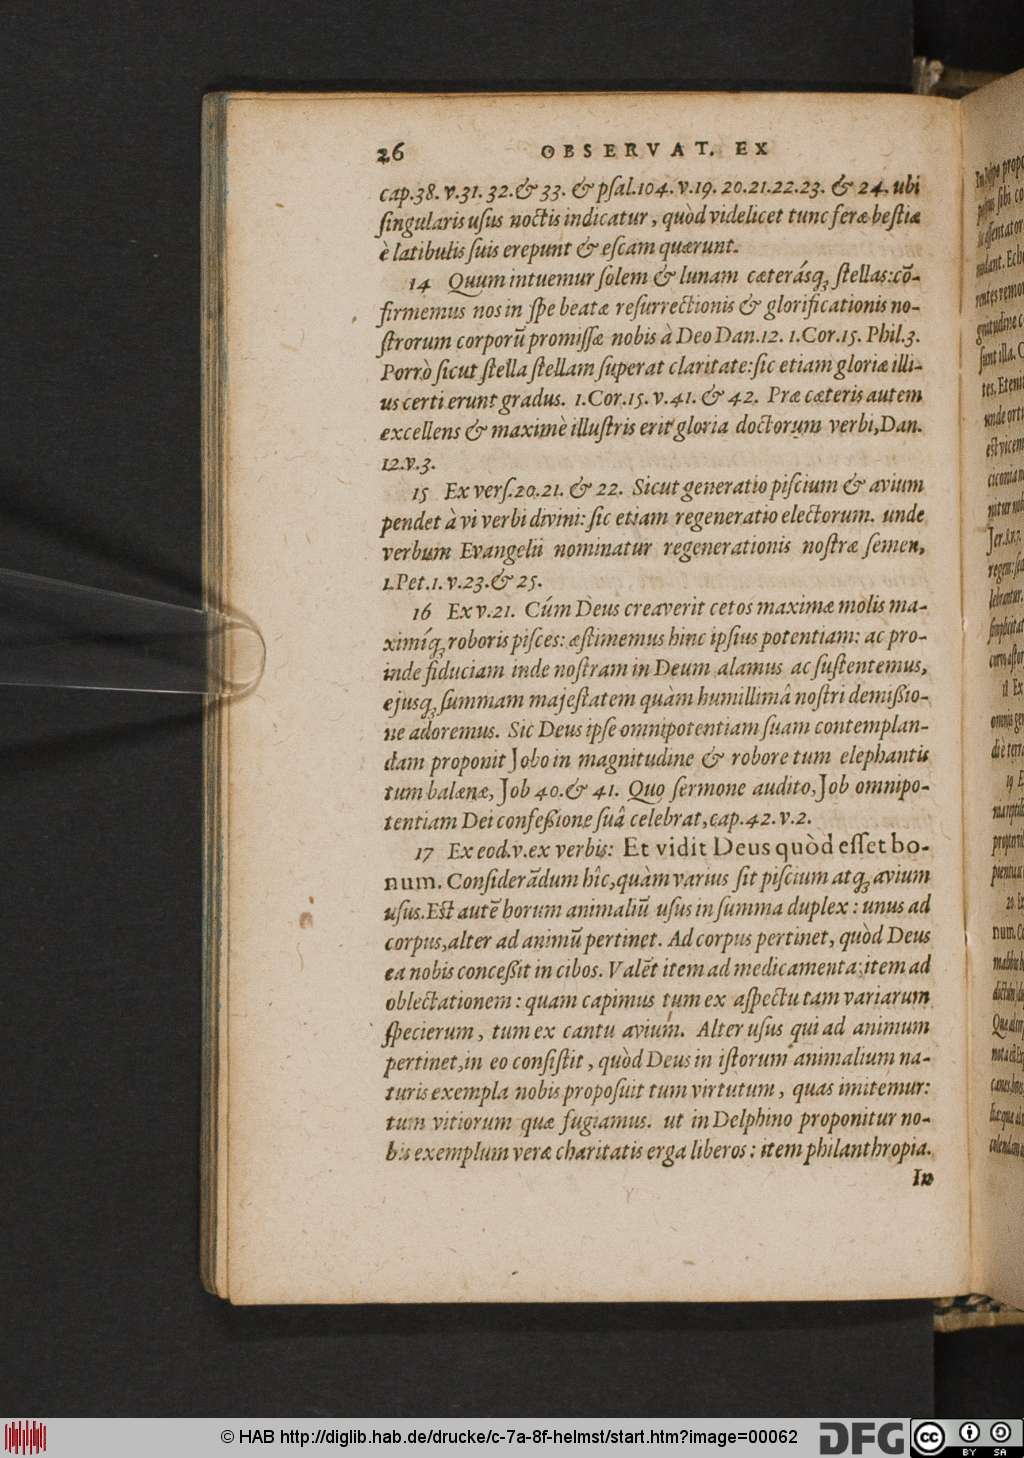 26 OBSERVAT. EX
cap.38. v.31. 32.& 33. & psal.104. v.19. 20.21.22.23. & 24. ubi
singularis usus noctis indicatur, quòd videlicet tunc feræ bestiæ
è latibulis suis erepunt & escam quærunt.
14 Quum intuemur solem & lunam cæterásq; stellas: cō-
firmemus nos in spe beatæ resurrectionis & glorificationis no-
strorum corporū promissæ nobis à Deo Dan.12. 1.Cor.15. Phil.3.
Porrò sicut stella stellam superat claritate: sic etiam gloriæ illi-
us certi erunt gradus. 1.Cor.15. v.41. & 42. Præ cæteris autem
excellens & maximè illustris erit gloria doctorum verbi, Dan.
12.v.3.
15 Ex vers.20.21. & 22. Sicut generatio piscium & avium
pendet à vi verbi divini: sic etiam regeneratio electorum. unde
verbum Evangelii nominatur regenerationis nostræ semen,
1.Pet.1.v.23.& 25.
16 Ex v.21. Cúm Deus creaverit cetos maximæ molis ma-
ximíq; roboris pisces: æstimemus hinc ipsius potentiam: ac pro-
inde fiduciam inde nostram in Deum alamus ac sustentemus,
ejusq; summam majestatem quàm humillimâ nostri demißio-
ne adoremus. Sic Deus ipse omnipotentiam suam contemplan-
dam proponit Jobo in magnitudine & robore tum elephantis
tum balænæ, Job 40.& 41. Quo sermone audito, Job omnipo-
tentiam Dei confeßione suâ celebrat, cap.42.v.2.
17 Ex eod.v.ex verbis: Et vidit Deus quòd esset bo-
num. Considerādum hîc, quàm varius sit piscium atq; avium
usus. Est autē horum animaliū usus in summa duplex: unus ad
corpus, alter ad animū pertinet. Ad corpus pertinet, quòd Deus
ea nobis conceßit in cibos. Valēt item ad medicamenta: item ad
oblectationem: quam capimus tum ex aspectu tam variarum
specierum, tum ex cantu avium. Alter usus qui ad animum
pertinet, in eo consistit, quòd Deus in istorum animalium na-
turis exempla nobis proposuit tum virtutum, quas imitemur:
tum vitiorum quæ fugiamus. ut in Delphino proponitur no-
bis exemplum veræ charitatis erga liberos: item philanthropia.
In
© HAB http://diglib.hab.de/drucke/c-7a-8f-helmst/start.htm?image=00062
DFG
cc BY SA